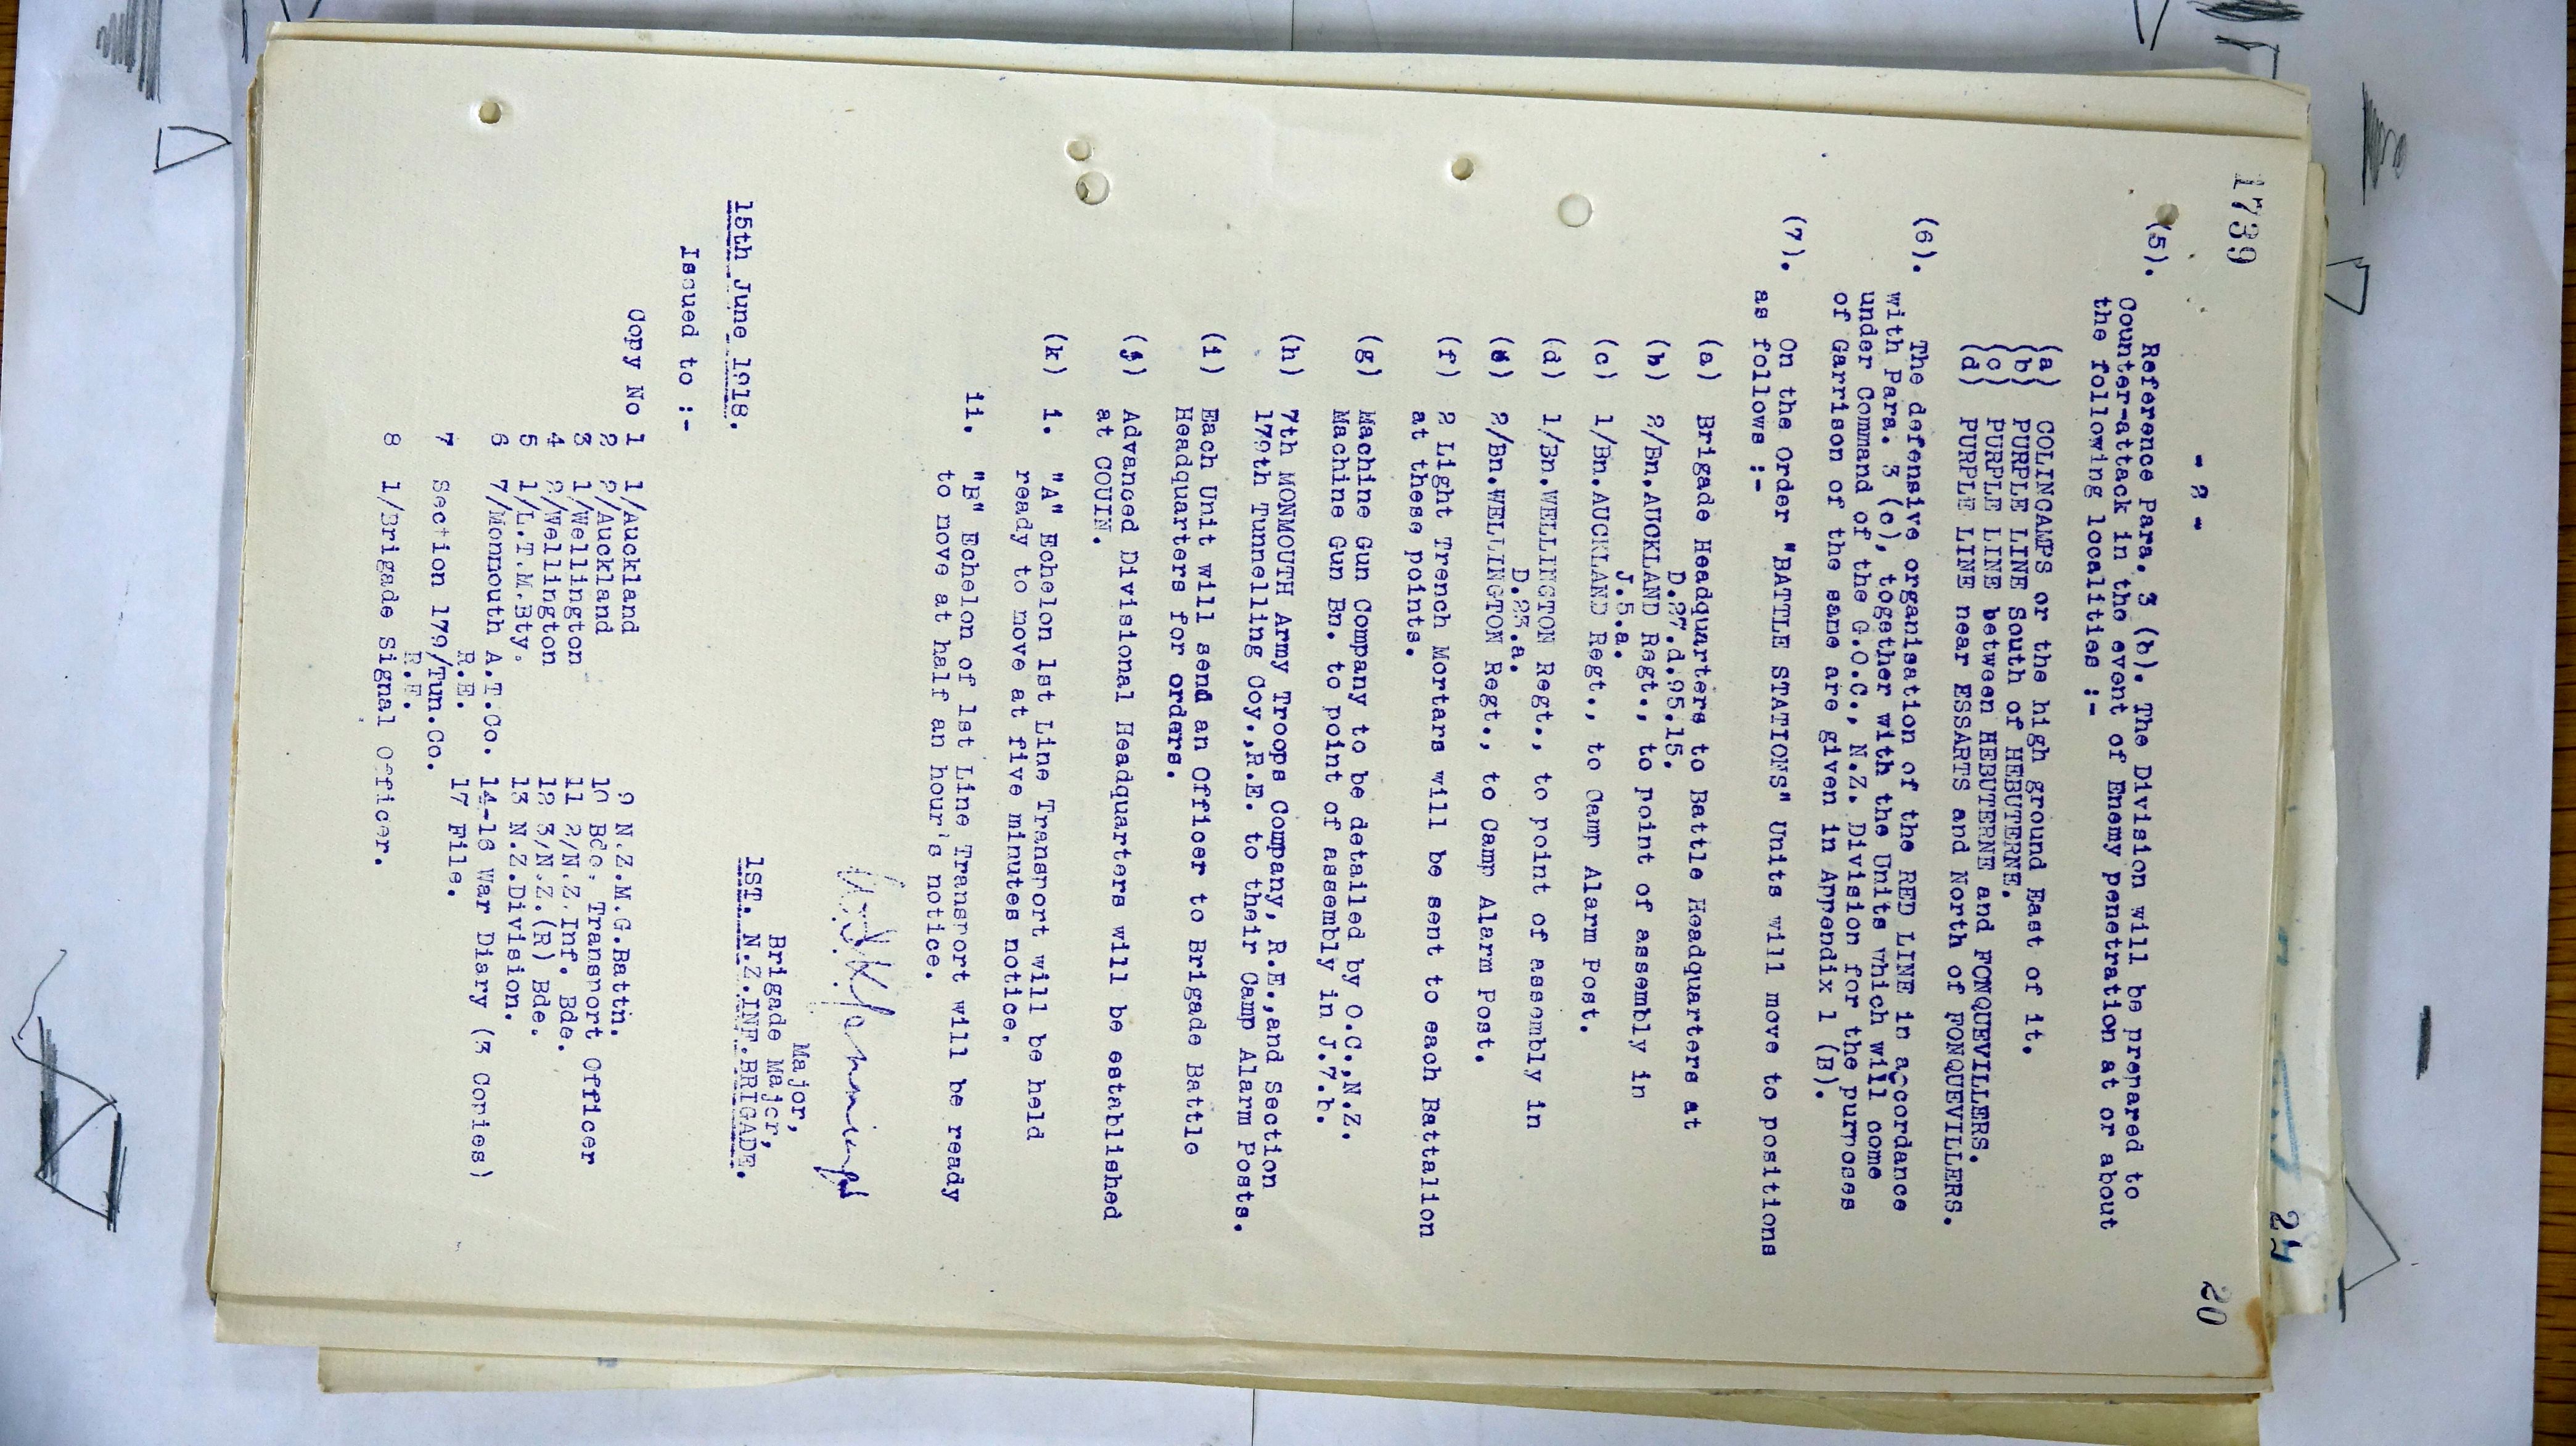 1739
20
24
- 2 -
(5). Reference Para. 3 (b). The Division will be prepared to
Counter-attack in the event of Enemy penetration at or about
the following localities :-
(a) COLINCAMPS or the high ground East of it.
(b) PURPLE LINE South of HEBUTERNE.
(c) PURPLE LINE between HEBUTERNE and FONQUEVILLERS.
(d) PURPLE LINE near ESSARTS and North of FONQUEVILLERS.
(6). The defensive organisation of the RED LINE in accordance
with Para. 3 (c), together with the Units which will come
under Command of the G.O.C., N.Z. Division for the purposes
of Garrison of the same are given in Appendix 1 (B).
(7). On the Order "BATTLE STATIONS" Units will move to positions
as follows :-
(a) Brigade Headquarters to Battle Headquarters at
D.27.d.95.15.
(b) 2/Bn.AUCKLAND Regt., to point of assembly in
J.5.a.
(c) 1/Bn.AUCKLAND Regt., to Camp Alarm Post.
(d) 1/Bn.WELLINGTON Regt., to point of assembly in
D.23.a.
(e) 2/Bn.WELLINGTON Regt., to Camp Alarm Post.
(f) 2 Light Trench Mortars will be sent to each Battalion
at these points.
(g) Machine Gun Company to be detailed by O.C.,N.Z.
Machine Gun Bn. to point of assembly in J.7.b.
(h) 7th MONMOUTH Army Troops Company, R.E.,and Section
179th Tunnelling Coy.,R.E. to their Camp Alarm Posts.
(i) Each Unit will send an Officer to Brigade Battle
Headquarters for orders.
(j) Advanced Divisional Headquarters will be established
at COUIN.
(k) i. "A" Echelon 1st Line Transport will be held
ready to move at five minutes notice.
ii. "B" Echelon of 1st Line Transport will be ready
to move at half an hour's notice.
Major,
Brigade Major,
1ST. N.Z.INF.BRIGADE.
15th June 1918.
Issued to :-
Copy No 1 1/Auckland 9 N.Z.M.G.Battn.
2 2/Auckland 10 Bde. Transport Officer
3 1/Wellington 11 2/N.Z.Inf. Bde.
4 2/Wellington 12 3/N.Z.(R) Bde.
5 1/L.T.M.Bty. 13 N.Z.Division.
6 7/Monmouth A.T.Co. 14-16 War Diary (3 Copies)
R.E. 17 File.
7 Section 179/Tun.Co.
R.E.
8 1/Brigade Signal Officer.